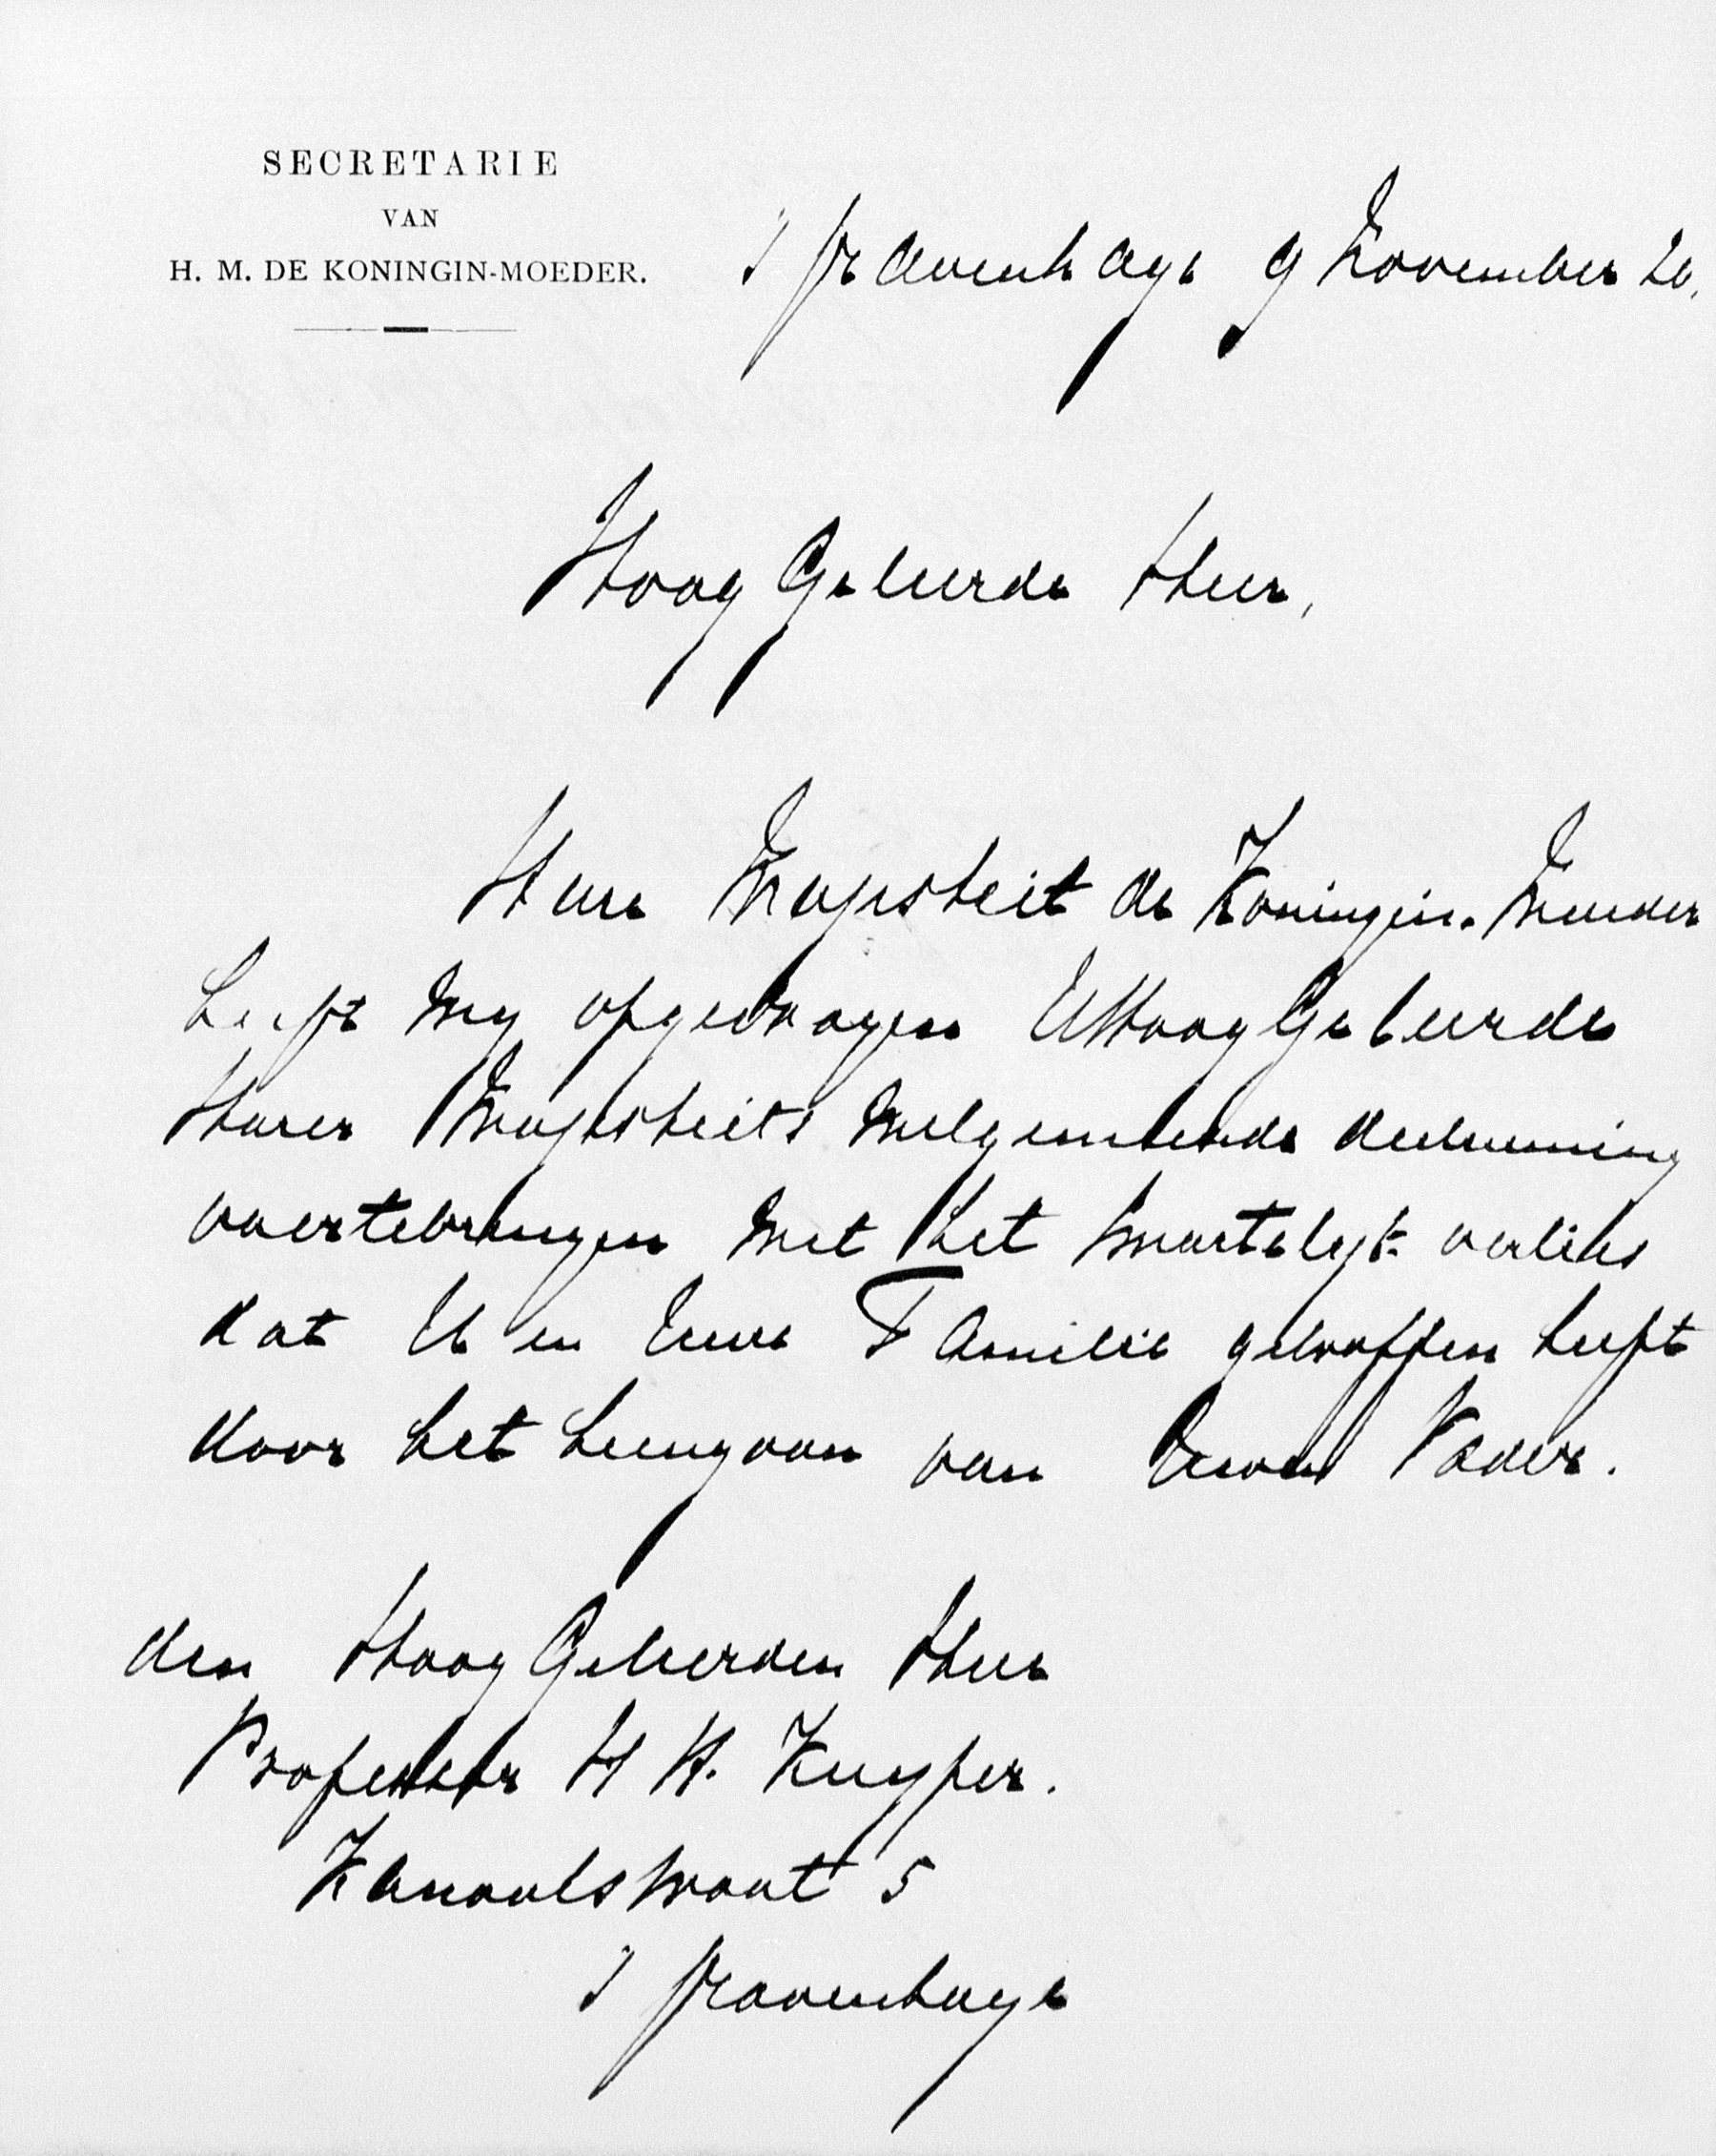 SECRETARIE
VAN
H. M. DE KONINGIN-MOEDER.
's Gravenhage 9 November 20.
HoogGeleerde Heer,
Hare Majesteit de Koningin-Moeder
heeft mij opgedragen UHoogGeleerde
Harer Majesteits welgemeende deelneming
overtebrengen met het smartelijk verlies
dat U en Uwe Familie getroffen heeft
door het heengaan van Uwen Vader.
den HoogGeleerden Heer
Professor H H. Kuyper.
Kanaalstraat 5
's Gravenhage